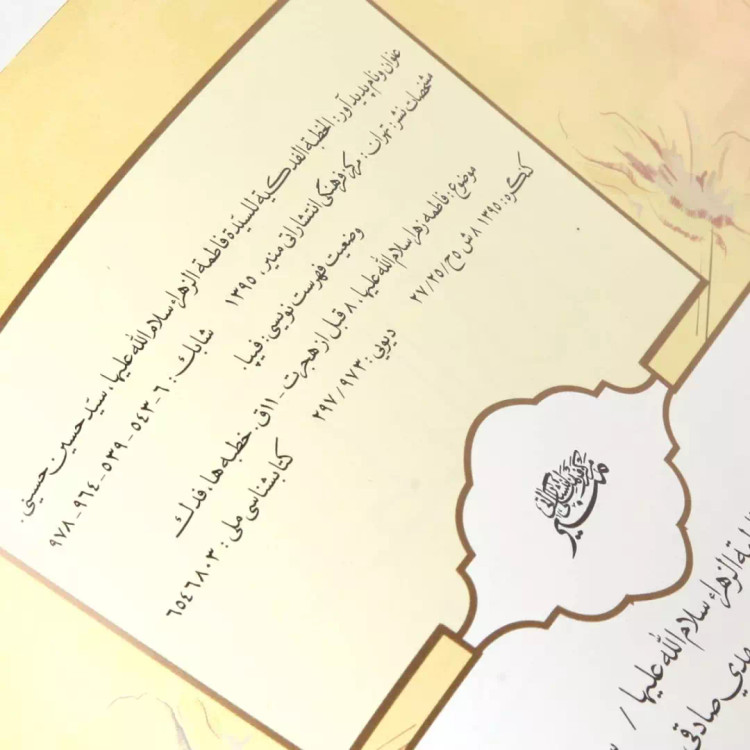 عنوان و نام پدیدآور: الخطبة الفدكية للسيّدة فاطمة الزهراء سلام الله عليها، سيّد حسين حسيني.
مشخصات نشر: تهران: مرکز فرهنگی انتشاراتی منیر، ۱۳۹۵ شابك: ۶-۵۴۳-۵۳۹-۹۶۴-۹۷۸
وضعیت فهرست نویسی: فیپا.
موضوع: فاطمه زهرا سلام الله علیها، ۸ قبل از هجرت - ۱۱ق. خطبه ها، فدك
کنگره: ۱۳۹۵ ۸ش۵ح/۲۷/۲۵ دیویی: ۲۹۷/۹۷۳ کتابشناسی ملی: ۶۵۴۶۸۰۳
منیر
الزهراء سلام الله عليها /
صادقي